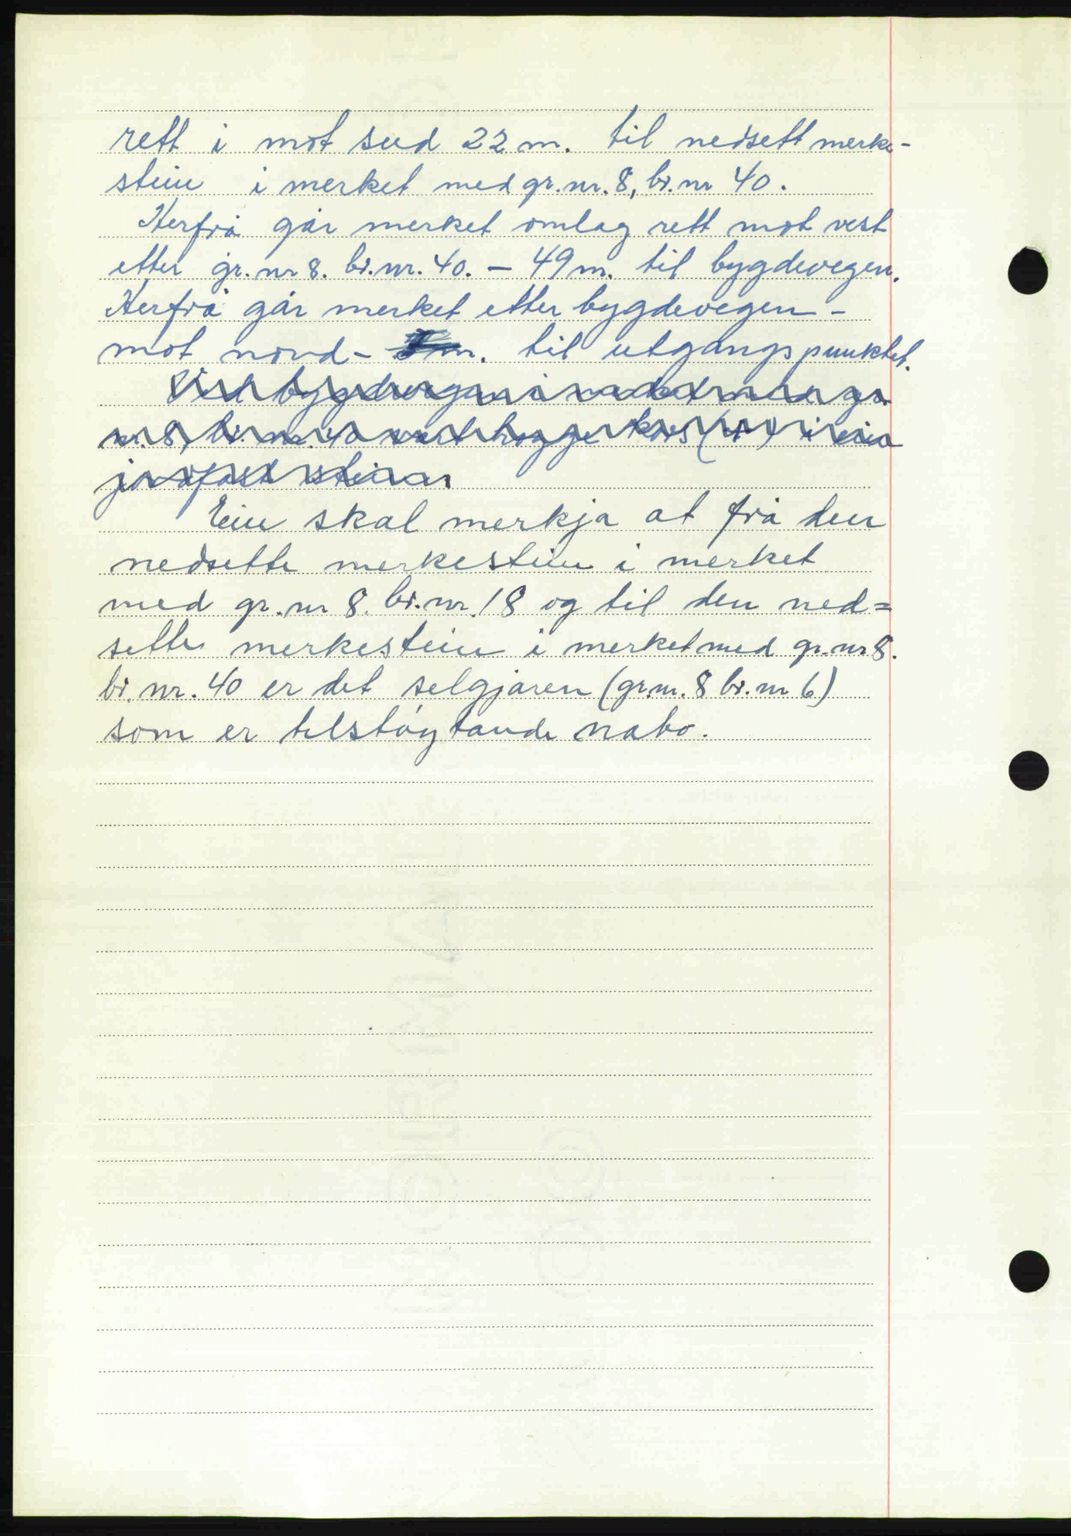 rett i mot sud 22 m. til nedsett merke-
stein i merket med gr. nr. 8, br. nr 40.
Herfrå går merket omlag rett mot vest
etter gr. nr 8. br. nr. 40. – 49 m. til bygdevegen.
Herfrå går merket etter bygdevegen –
mot nord – m. til utgangspunktet.
Ved bygdevegen i merket med gr.
nr. 8, br. nr. 40 vart hogge kors (+) i ein
jordfast stein.
Ein skal merkja at frå den
nedsette merkestein i merket
med gr. nr 8. br. nr. 18 og til den ned=
sette merkestein i merket med gr. nr 8.
br. nr. 40 er det selgjaren (gr. nr. 8 br. nr 6)
som er tilstøytande nabo.